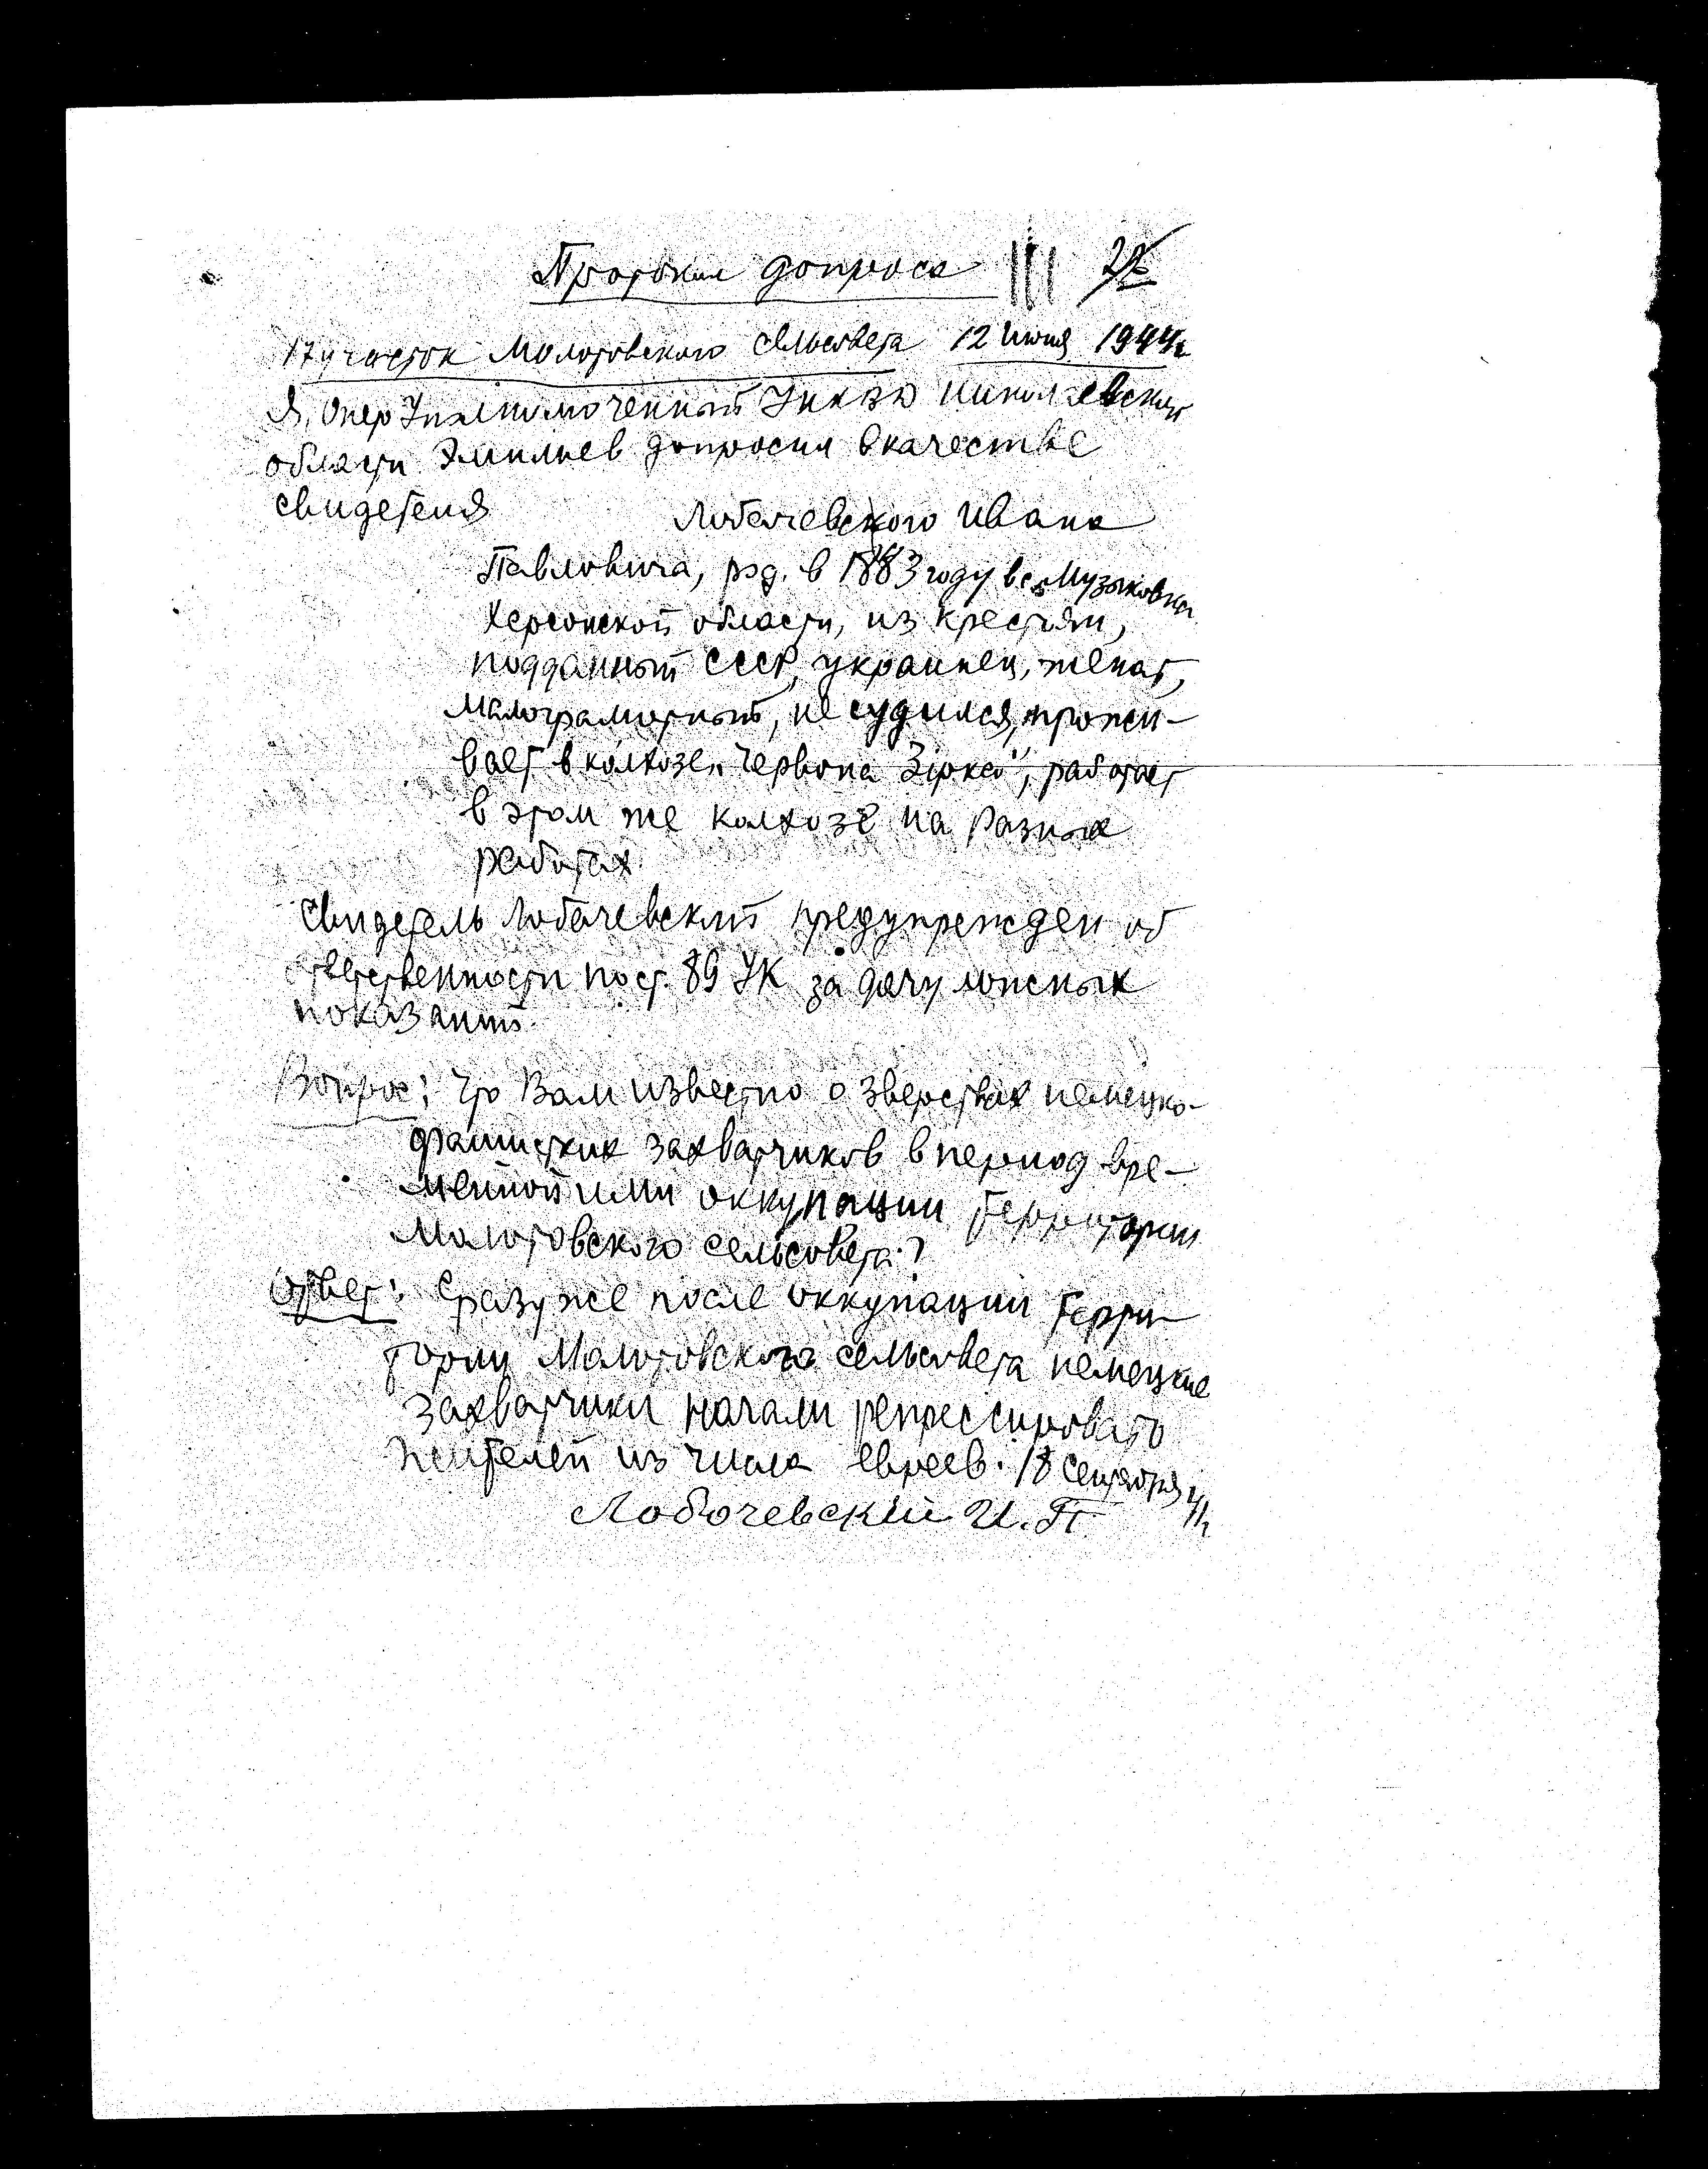 Протокол допроса
17 участок Молотовского сельсовета 12 Июня 1944г
Я, Опер Уполномоченный УНКВД Николаевской
области Эмилиев допросил в качестве
свидетеля Лобачевского Ивана
Павловича, род. в 1883 году в с. Музыковка
Херсонской области, из крестьян,
подданный СССР, украинец, женат,
малограмотный, не судился, прожи-
вает в колхозе „Червона Зірка", работает
в этом же колхозе на разных
работах.
Свидетель Лобачевский предупрежден об
ответственности по ст. 89 УК за дачу ложных
показаний.
Вопрос: Что Вам известно о зверствах немецко-
фашистких захватчиков в период вре-
менной ими оккупации территории
Молотовского сельсовета?
Ответ: Сразу же после оккупации терри-
тории Молотовского сельсовета немецкие
захватчики начали репрессировать
жителей из числа евреев. 18 сентября 41г
Лобочевский И. П.